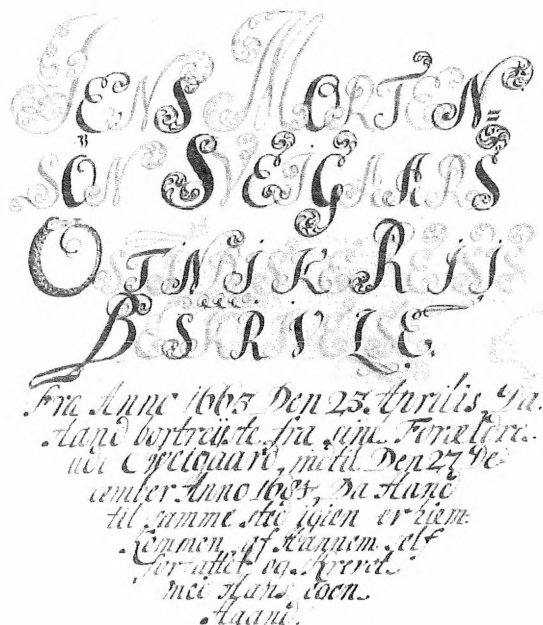 JENS MORTEN=
SÖN SVEIGAARS
OSTINDISKE REIJSES
BESKRIVELSE.
Fra Anno 1663 Den 23 Aprilis, Da
Hand bortreiste fra sine Forældre
udi Sveigaard, indtil Den 27 De
cember Anno 1684, Da Hand
til samme sted igien er hiem
kommen, af Hannem self
forfattet og skrevet
med Hans egen
Haand.